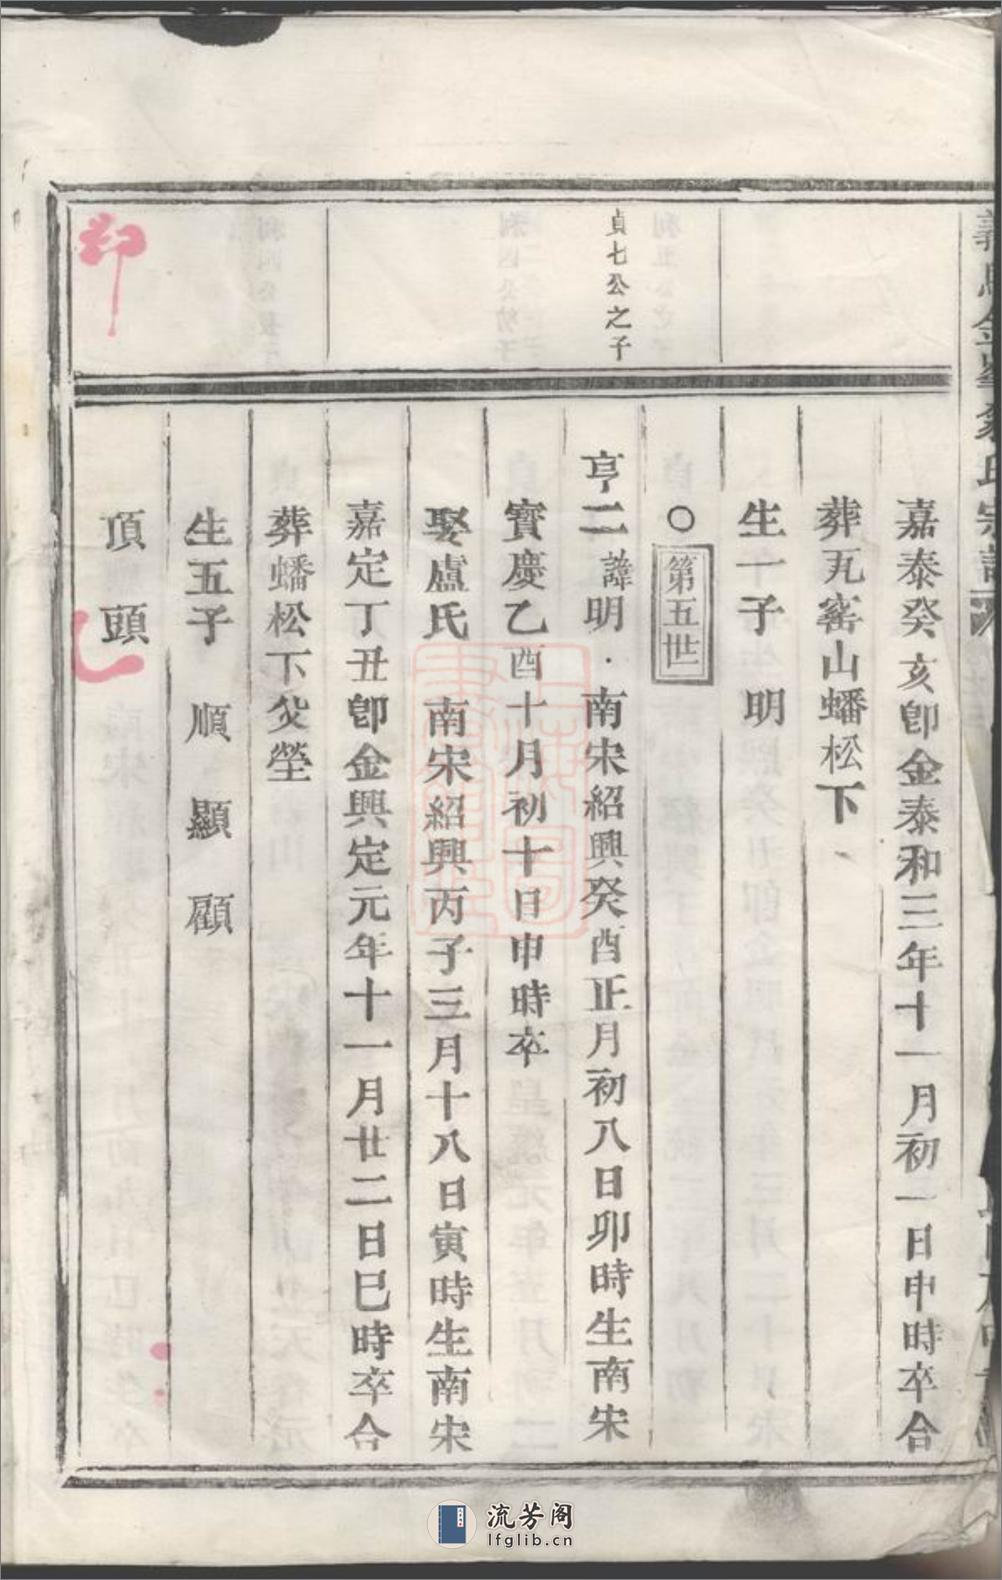 嘉泰癸亥卽金泰和三年十一月初一日申時卒合
葬瓦窰山蟠松下
生一子 明
○ 第五世
貞七公之子
亨二 諱明·南宋紹興癸酉正月初八日卯時生南宋
寶慶乙酉十月初十日申時卒
娶盧氏 南宋紹興丙子三月十八日寅時生南宋
嘉定丁丑卽金興定元年十一月廿二日巳時卒合
葬蟠松下父塋
生五子 順 顯 顧
頂 頭
流芳阁
lfglib.cn